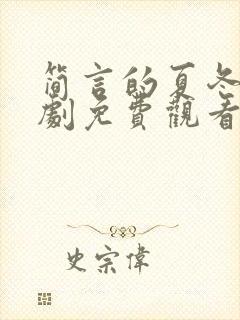 简言的夏冬
劇免費觀看
史宗偉